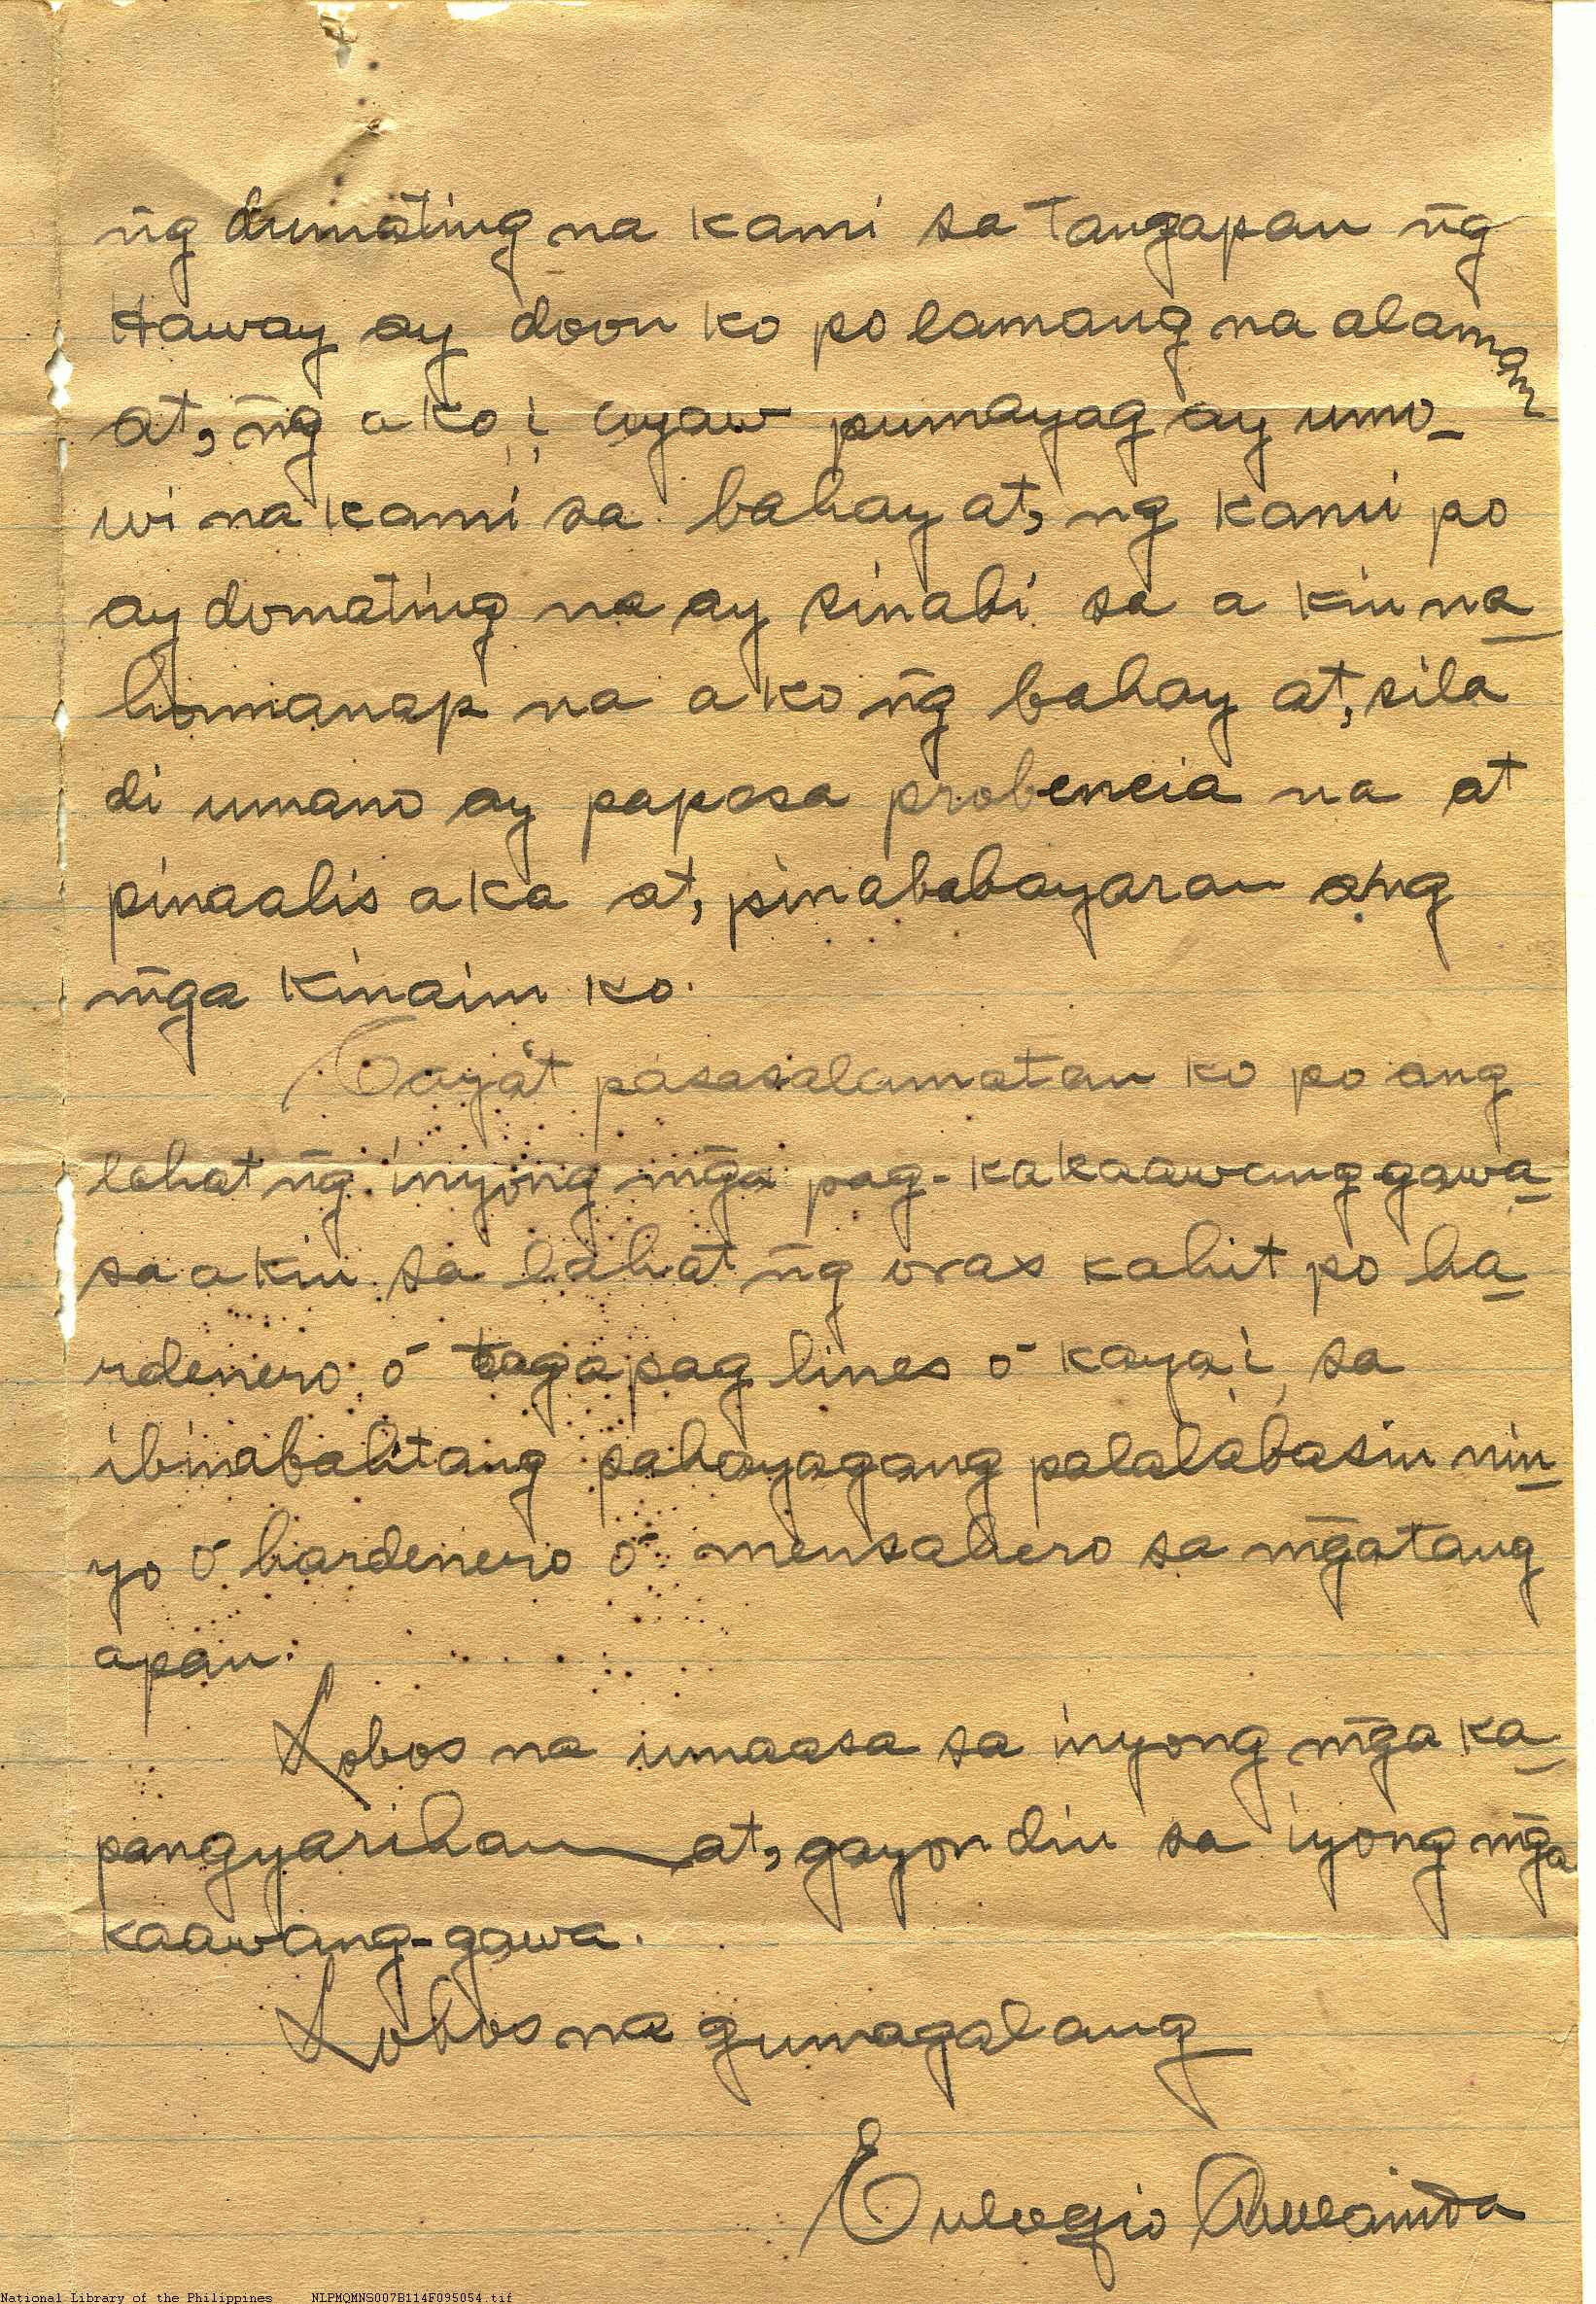 ñg dumating na kami sa Tangapan ñg
Haway ay doon ko po lamang na alaman
at, ñg ako,i, ayaw pumayag ay umo-
wi na kami sa bahay at, ng kami po
ay domating na ay sinabi sa a kin na
humanap na ako ñg bahay at, sila
di umano ay papasa probencia na at
pinaalis aka at, pinababayaran ang
m̃ga kinain ko.
Caya't pasasalamatan ko po ang
lahat ñg inyong m̃ga pag-kakaawang gawa
sa akin sa lahat ñg oras kahit po ha
rdenero ó tagapag lines ó kaya'i, sa
ibinabalitang pahayagang palalabasin nin
yo ó hardenero ó mensahero sa m̃ga tang
apan.
Lobos na umaasa sa inyong m̃ga ka
pangyarihan at, gayon din sa iyong m̃ga
kaawang-gawa.
Lobos na gumagalang
Eulogio
National Library of the Philippines NLPMQMNS007B114F095054.tif